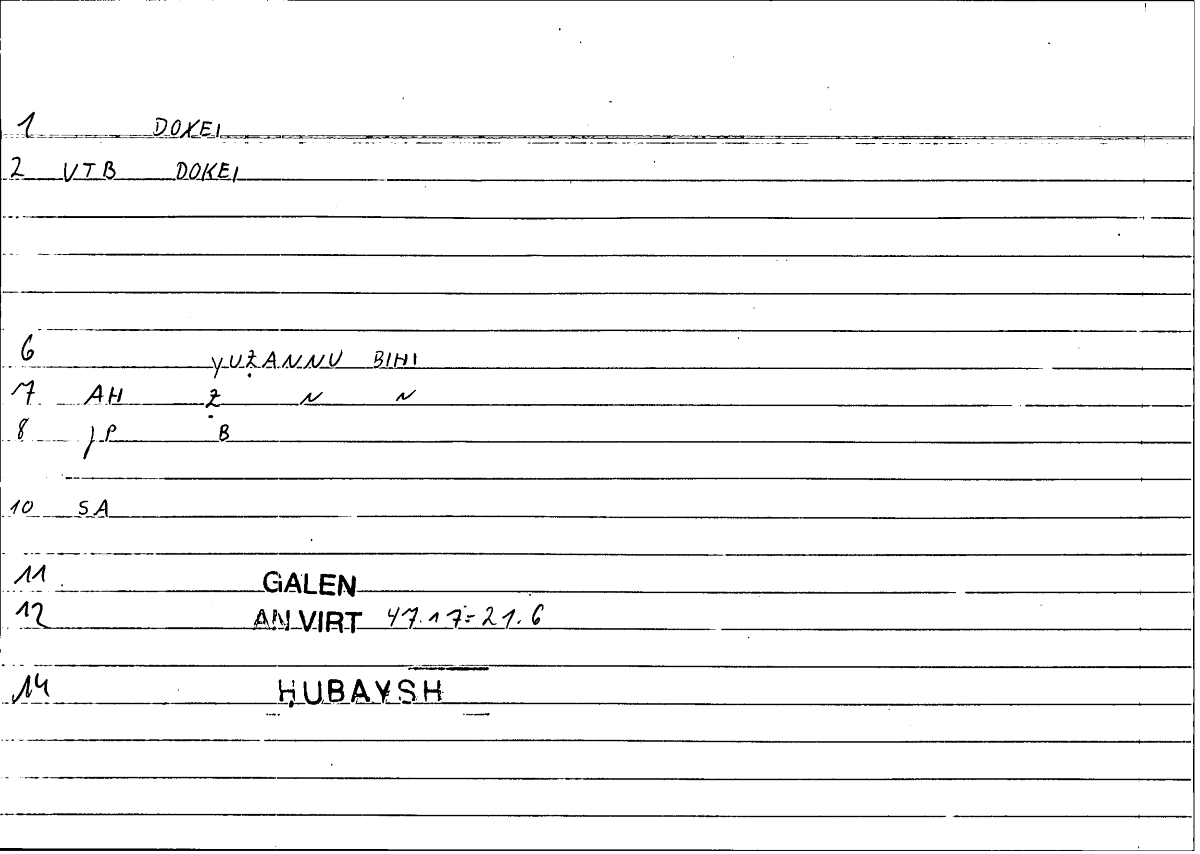 1 DOKEI
2 VTB DOKEI
6 YUẒANNU BIHI
7 AH Ẓ N N
8 JP B
10 SA
11 GALEN
12 AN VIRT 47.17=21.6
14 ḤUBAYSH